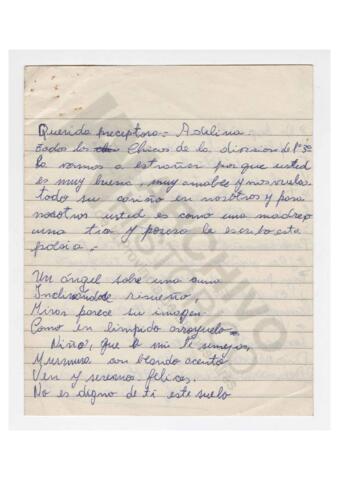 Querida preceptora = Adelina.
todos los chicos de la division de 1º 3º
la vamos a estrañar porque usted
es muy buena, muy amable y nos
todo su cariño en nosotros y para
nosotros usted es como una madre, o
una tía y por eso le escribo esta
poésia =
Un ángel sobre una cuna
Inclinandose risueño,
Mirar parece su imagen
Como en limpido arroyuelo.
Niño, que a mi te semejas,
Murmura con blando acento
Ven y seremos felices.
No es digno de ti este suelo
ARCHIVO